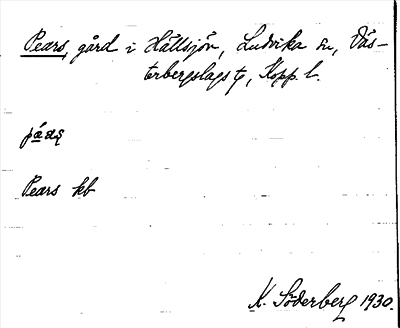 Pears, gård i Hällsjön, Ludvika sn, Väs-
terbergslags tg, Kopp. l.
Pears kb
K. Söderberg 1930.